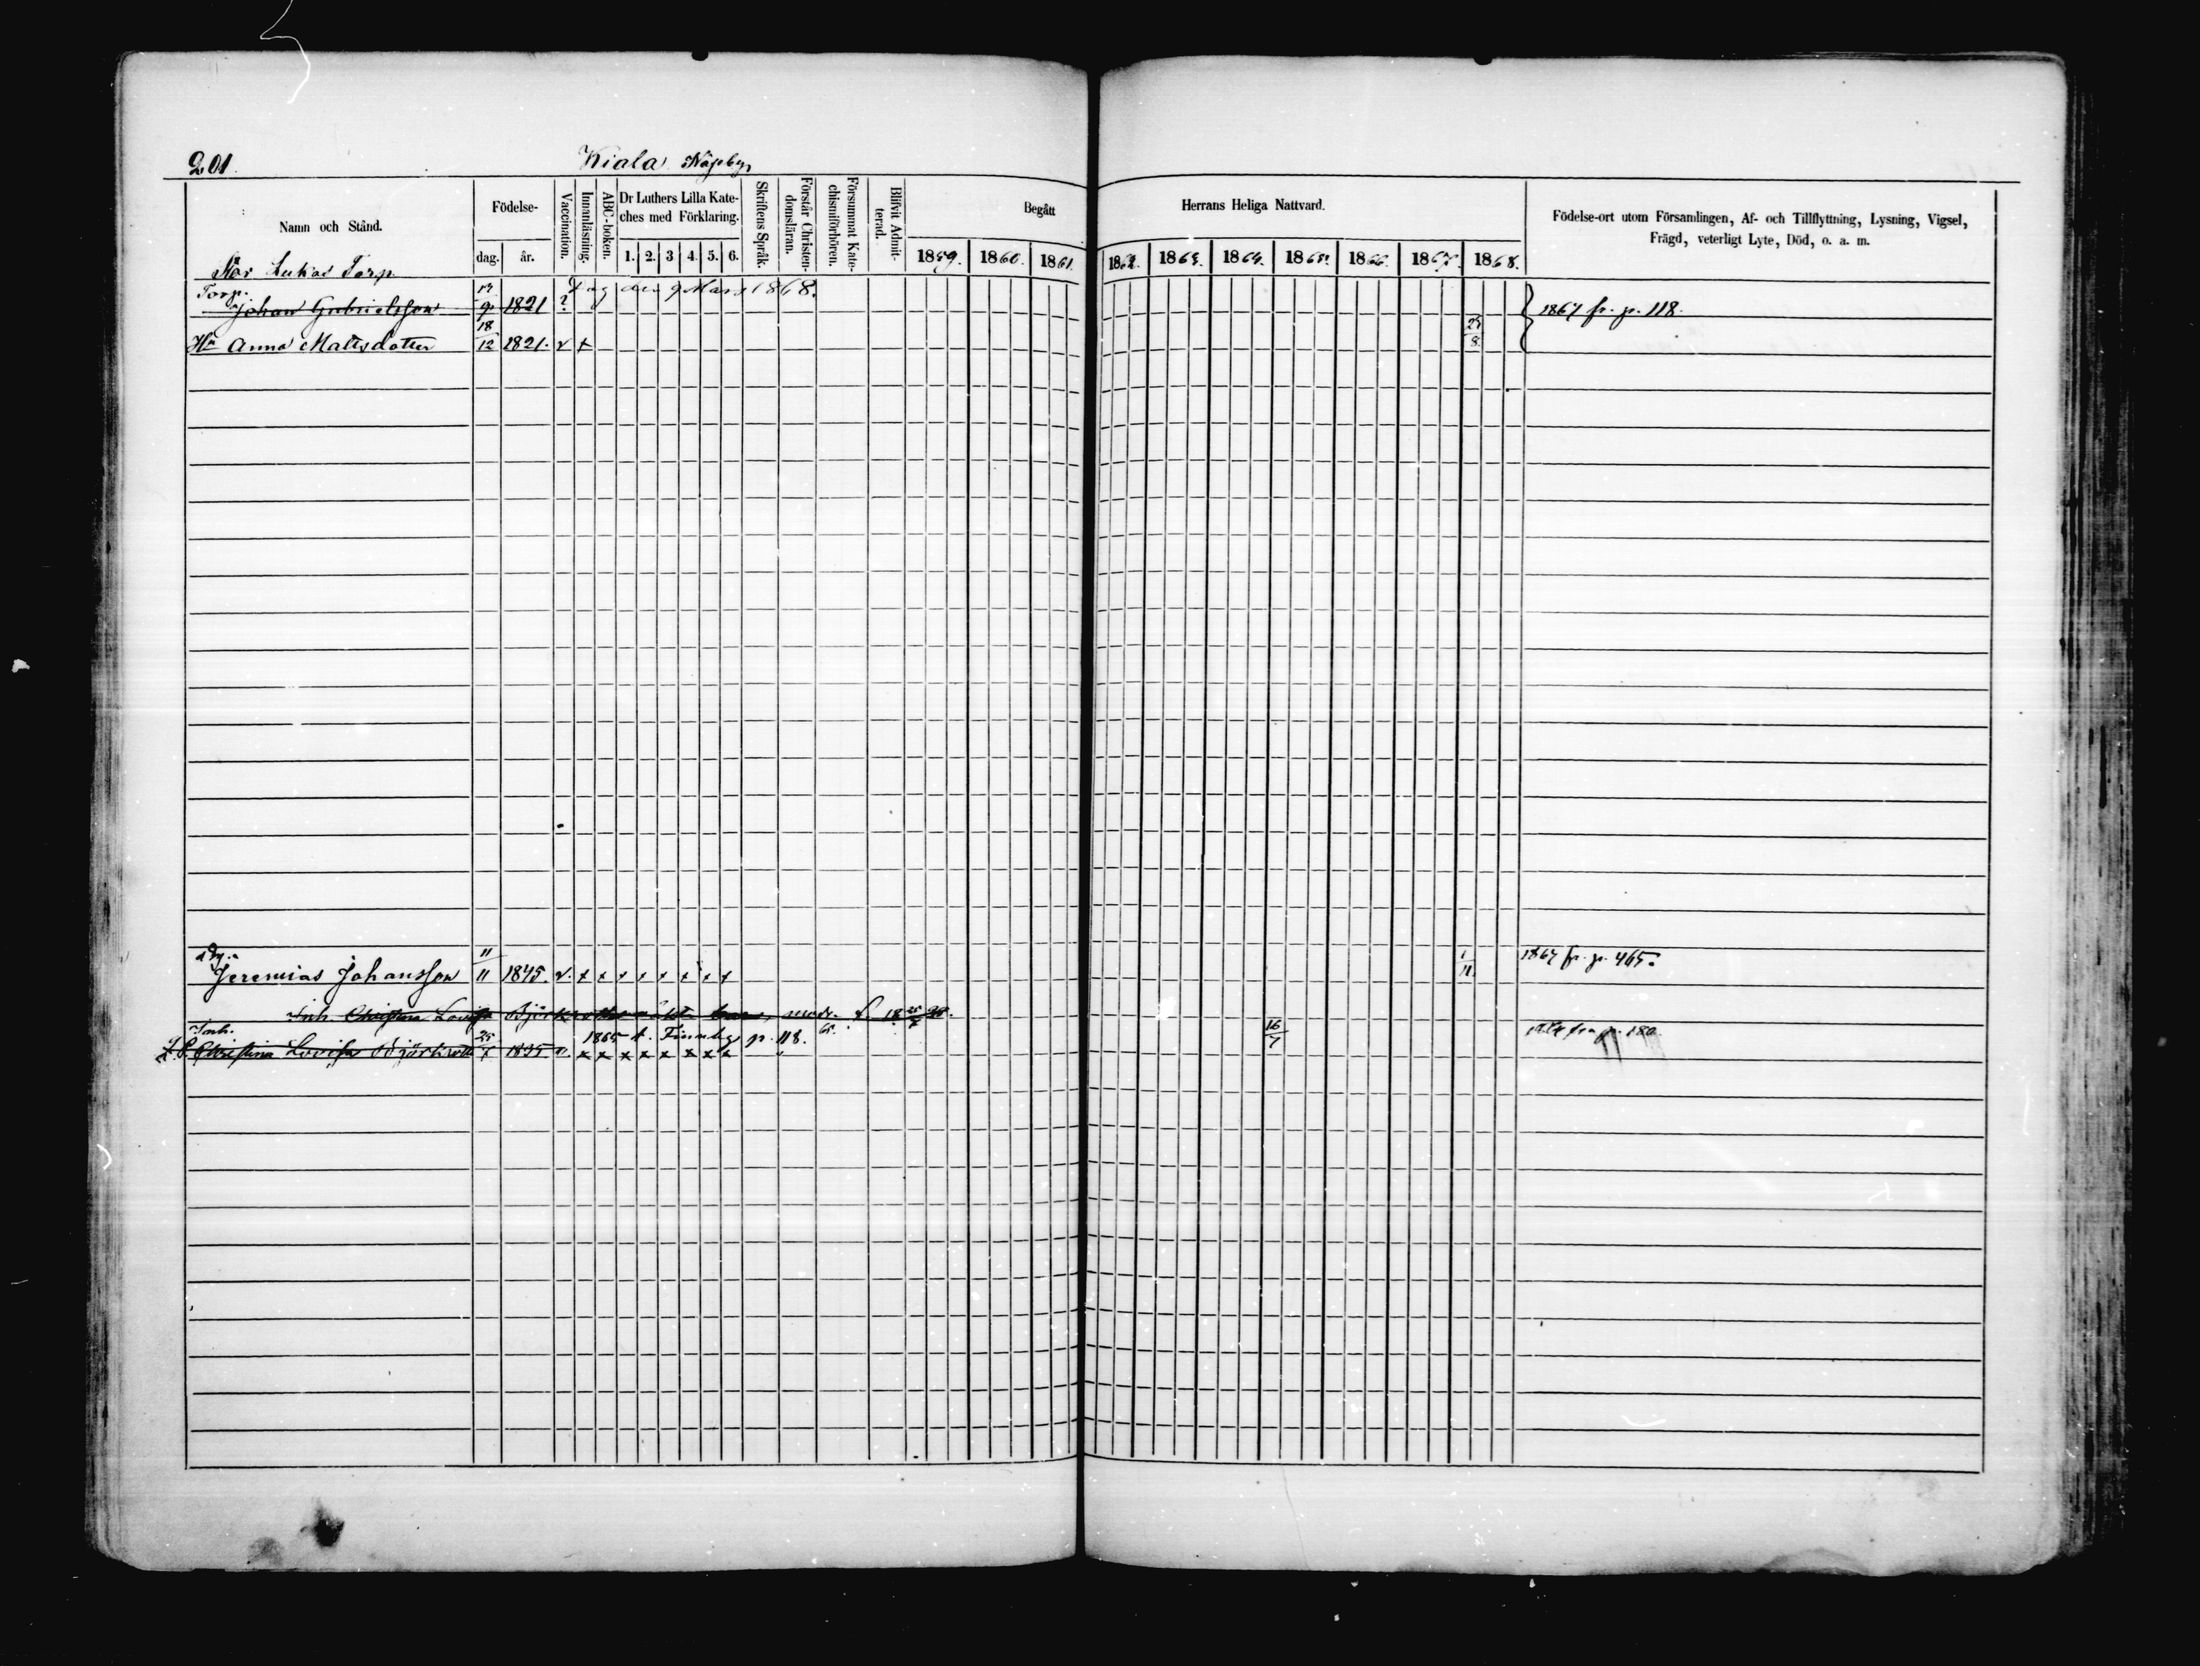 201.
Kiala Näseby
Namn och Stånd.
Födelse-
dag. år.
Vaccination.
Innanläsning.
ABC-boken.
Dr Luthers Lilla Kate-
ches med Förklaring.
1. 2. 3 4. 5. 6.
Skriftens Språk.
Förstår Christen-
domsläran.
Försummat Kate-
chismiförhören.
Blifvit Admit-
terad.
Begått
1859. 1860. 1861.
Herrans Heliga Nattvard.
1862. 1863. 1864. 1865. 1866. 1867. 1868.
Födelse-ort utom Församlingen, Af- och Tillflyttning, Lysning, Vigsel,
Frägd, veterligt Lyte, Död, o. a. m.
Lukas Torp
Torp. den 9 Mars 1868.
Johan Gabrielsson 9 1821 ? 1867 fr. p. 118.
18 25
Hu Anna Mattsdotter 12 1821. v x 8.
11 1
Jeremias Johansson 11 1845. v. x x x x x x x x 11. 1867 fr. p. 465.
Inh. Christina Lovisa
Inh. 25 1865 t. Finnby p. 118. 16
Christina Lovisa 1835 v. x x x x x x x x 7 p. 180